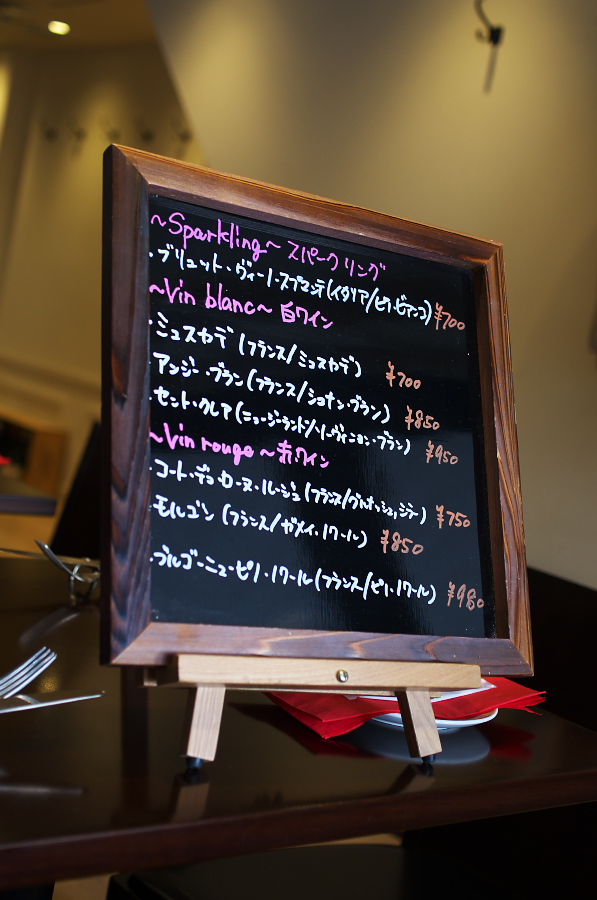 ~Sparkling~ スパークリング
・ブリュット・ヴィーノ・スプマンテ(イタリア/ピノ・ビアンコ) ¥700
~Vin blanc~ 白ワイン
・ミュスカデ (フランス/ミュスカデ) ¥700
・アンジー・ブラン(フランス/シュナン・ブラン) ¥850
・セント・クレア(ニュージーランド/ソーヴィニヨン・ブラン) ¥950
~Vin rouge~ 赤ワイン
・コート・デュ・ローヌ・ルージュ (フランス/グルナッシュ,シラー) ¥750
・モルゴン (フランス/ガメイ・ノワール) ¥850
・ブルゴーニュ・ピノ・ノワール(フランス/ピノ・ノワール) ¥980